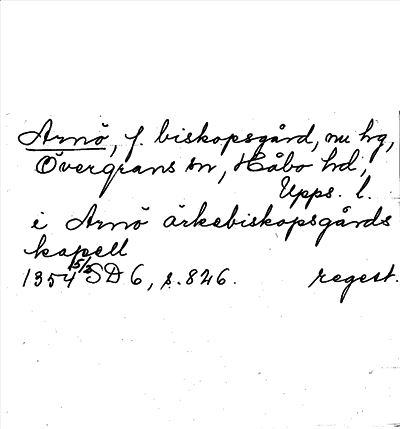 Arnö, f. biskopsgård, nu hg,
Övergrans sn, Håbo hd,
Upps. l.
i Arnö ärkebiskopsgårds
kapell
1354 15/3 SD 6, s. 826. regest.